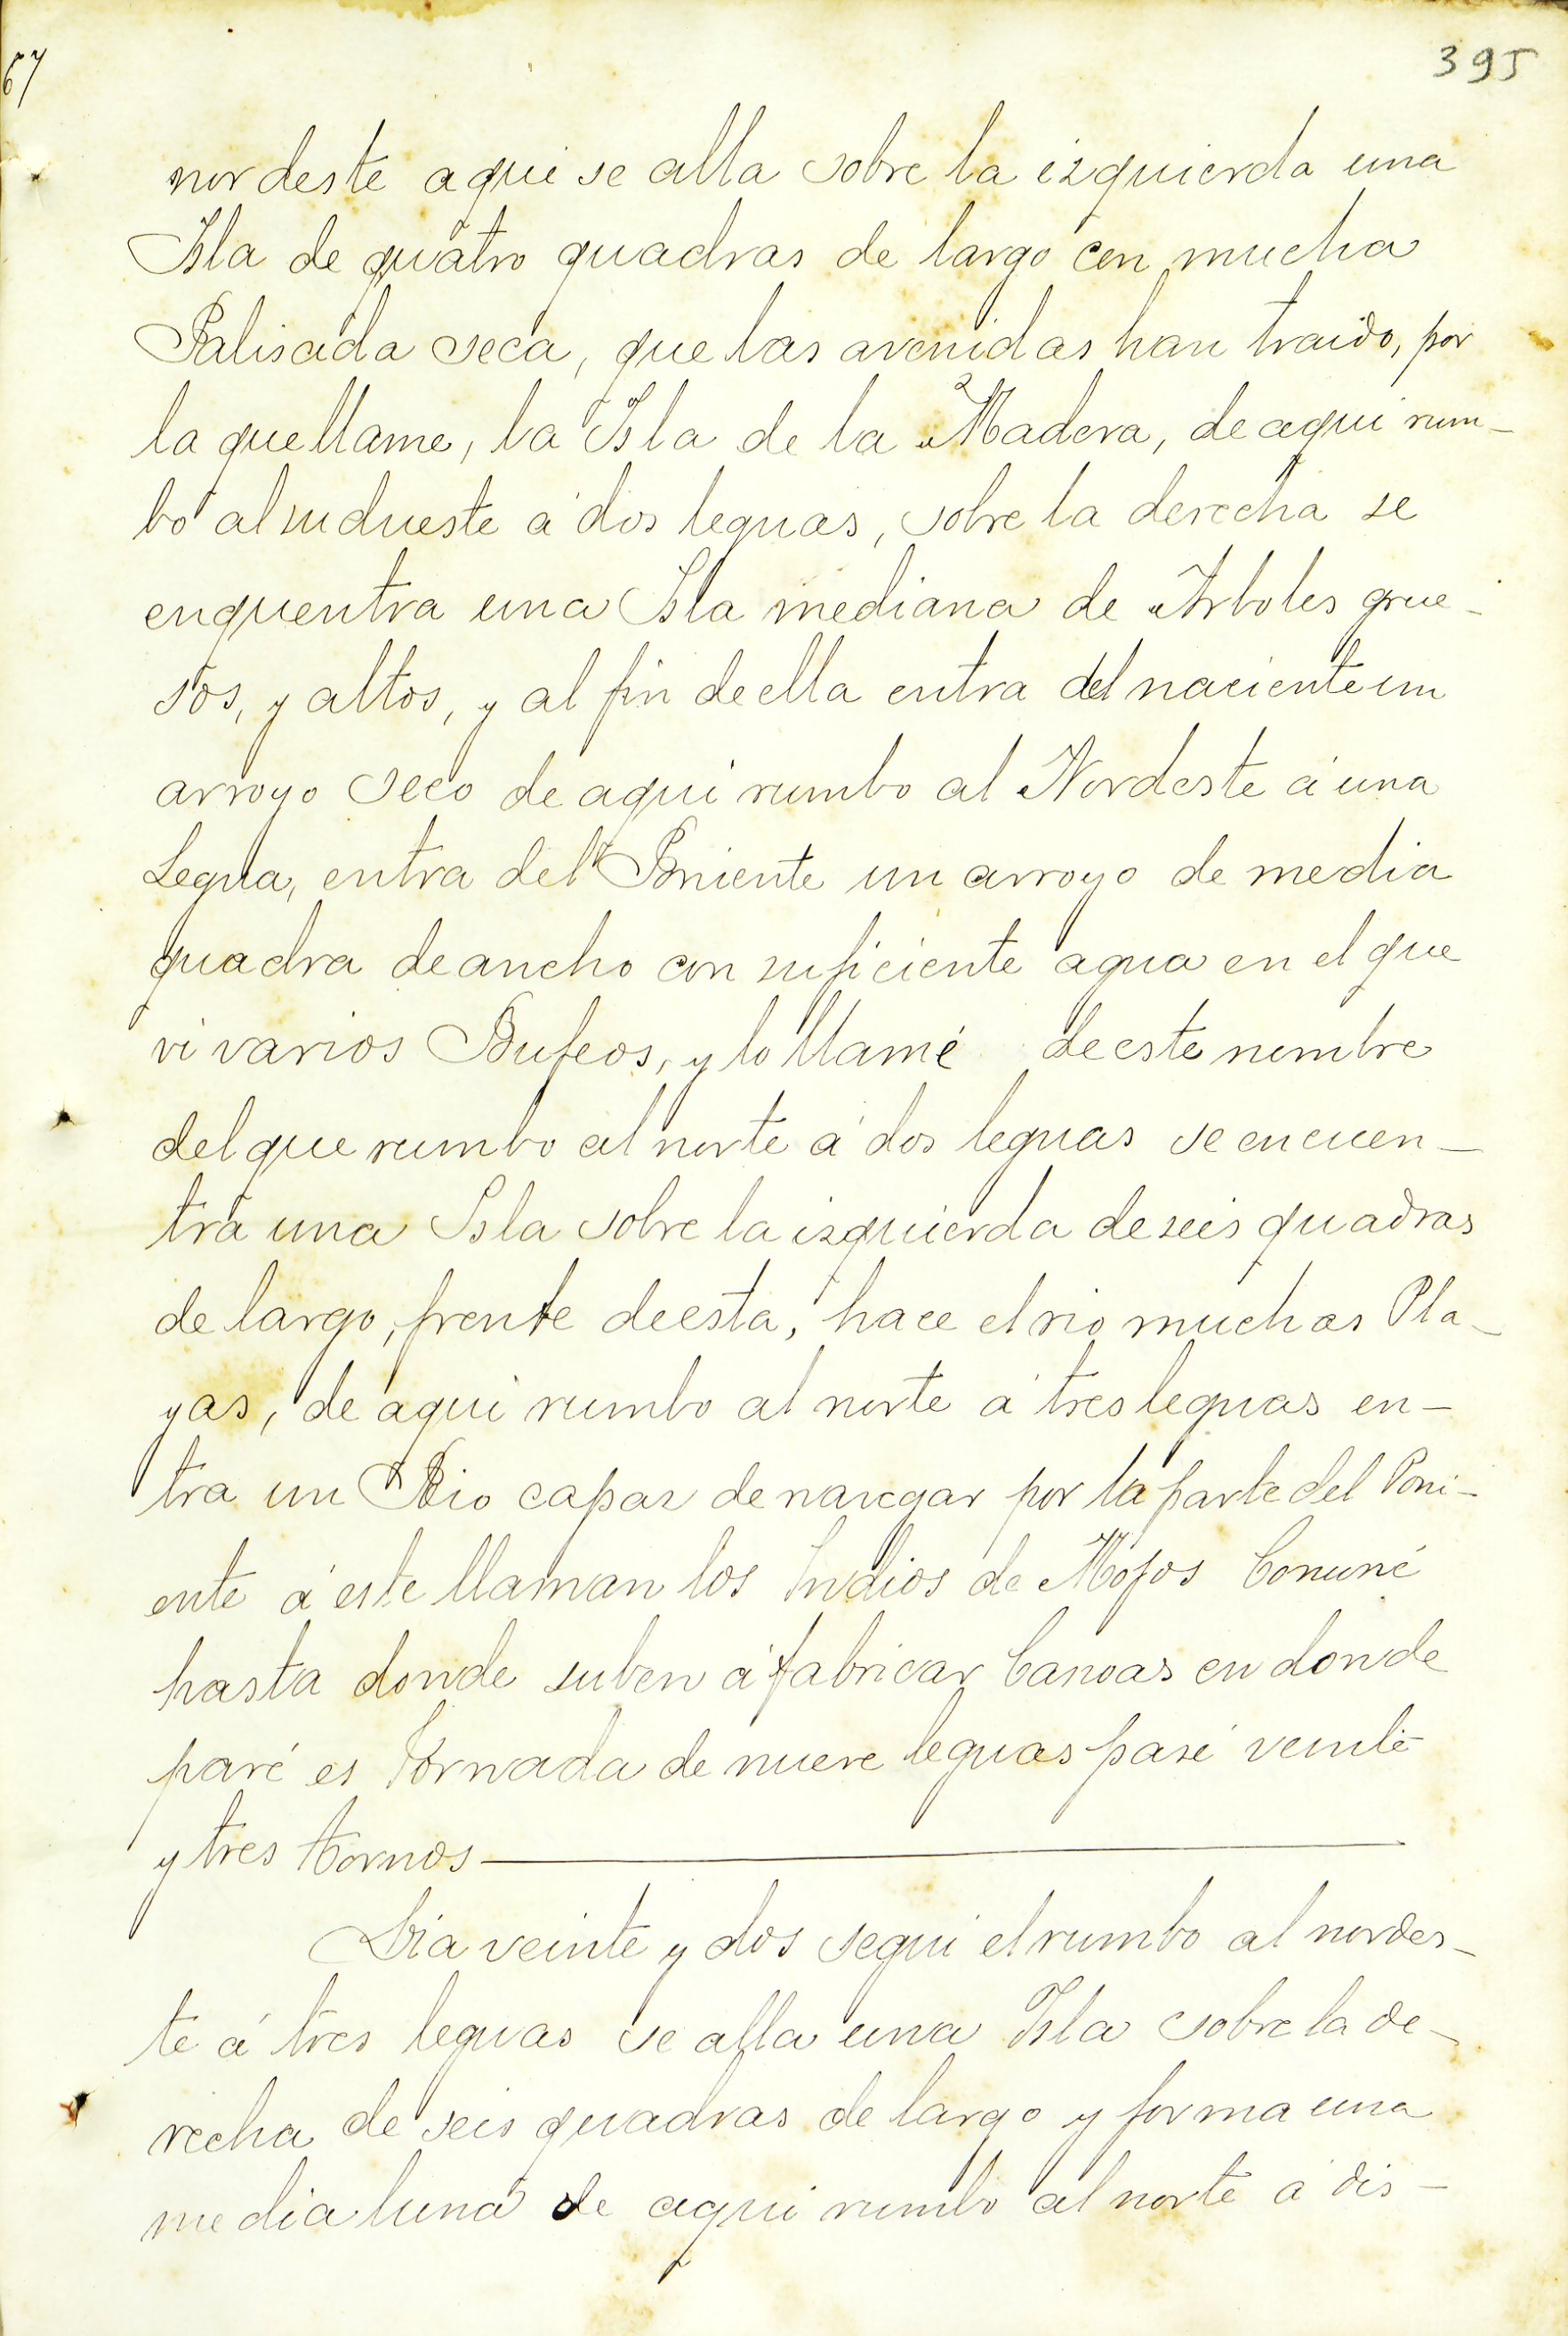 67
395
nordeste aqui se alla sobre la izquierda una
Isla de quatro quadras de largo con mucha
Palisada seca, que las avenidas han traido, por
la que llame, la Isla de la Madera, de aqui rum-
bo al sudueste á dos leguas, sobre la derecha se
enquentra una Isla mediana de Arboles grue-
sos, y altos, y al fin de ella entra del naciente un
arroyo seco de aqui rumbo al Nordeste á una
Legua, entra del Poniente un arroyo de media
quadra de ancho con suficiente agua en el que
vi varios Bufeos, y lo llamé de este nombre
del que rumbo al norte á dos leguas se encuen-
tra una Isla sobre la izquierda de seis quadras
de largo, frente de esta, hace el rio muchas Pla-
yas, de aqui rumbo al norte á tres leguas en-
tra un Rio capaz de navegar por la parte del Poni-
ente á este llaman los Indios de Mojos Conuné
hasta donde suben á fabricar Canoas en donde
paré es Jornada de nueve leguas pasé veinte
y tres tornos
Dia veinte y dos segui el rumbo al nordes-
te á tres leguas se alla una Isla sobre la de-
recha de seis quadras de largo y forma una
media luna de aqui rumbo al norte á dis-